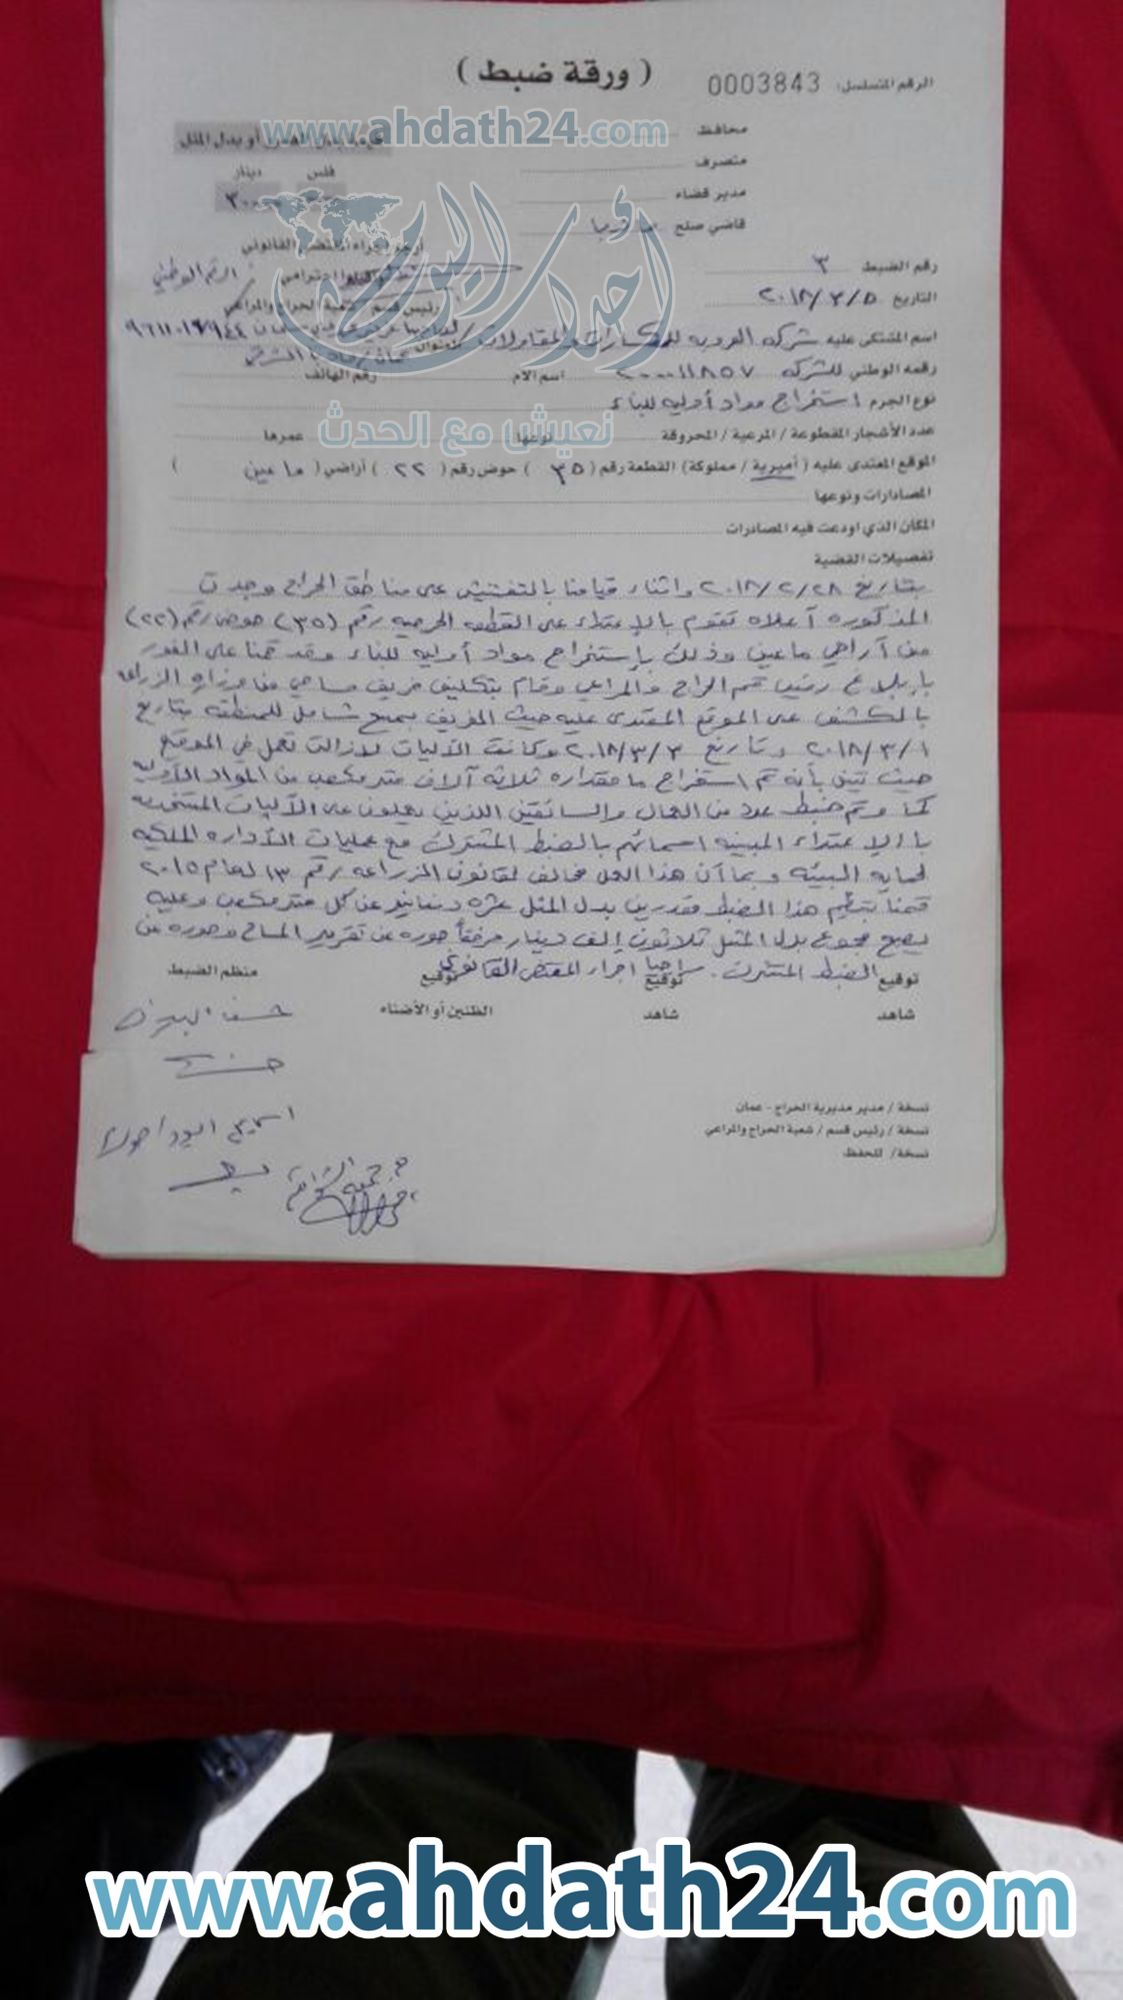 ( ورقة ضبط )
الرقم المتسلسل: 0003843
www.ahdath24.com
محافظ
متصرف
فلس دينار
مدير قضاء
قاضي صلح مادبا
رقم الضبط ٣
الرقم الوطني
التاريخ ٢٠١٨/٣/٥
اسم المشتكى عليه شركه العروبه للكسارات والمقاولات
رقمه الوطني للشركه ٢٠٠٠١١٨٥٧ اسم الام رقم الهاتف
نوع الجرم استخراج مواد أوليه للبناء
عدد الأشجار المقطوعة / المرعية / المحروقة نوعها عمرها
الموقع المعتدى عليه ( أميرية / مملوكة) القطعة رقم ( ٣٥ ) حوض رقم ( ٢٢ ) أراضي ( ماعين )
المصادرات ونوعها
المكان الذي اودعت فيه المصادرات
أحداث اليوم
نعيش مع الحدث
تفصيلات القضية
بتاريخ ٢٠١٨/٢/٢٨ واثناء قيامنا بالتفتيش على مناطق الحراج وجدت
المذكوره أعلاه تقوم بالإعتداء على القطعه الحرجيه رقم (٣٥) حوض رقم (٢٢)
من آراضي ماعين وذلك بإستخراج مواد أوليه للبناء وقد قمنا على الفور
بإبلاغ رئيس قسم الحراج والمراعي وقام بتكليف فريف مساحي من وزاره الزراعه
بالكشف على الموقع المعتدى عليه حيث الفريف بمسح شامل للمنطقه بتاريخ
٢٠١٨/٣/١ وتاريخ ٢٠١٨/٣/٣ وكانت الآليات لازالت تعمل في الموقع
حيث تبين بأنه تم استخراج ما مقداره ثلاثه آلاف متر مكعب من المواد الآوليه
كما وتم ضبط عدد من العمال والسائقين اللذين يعملون على الآليات المستخدمه
بالإعتداء المبينه اسمائهم بالضبط المشترك مع عمليات الآداره الملكيه
لحمايه البيئه وبما آن هذا العمل مخالف لقانون الزراعه رقم ١٣ لعام ٢٠١٥
قمنا بتنظيم هذا الضبط مقدرين بدل المثل عشره دنانير عن كل متر مكعب وعليه
يصبح مجموع بدل المثل ثلاثون إلف دينار مرفقاً صوره عن تقرير المساح وصوره عن
الضبط المشترك. راجيا اجراء المقتضى القانوني
توقيع توقيع توقيع منظم الضبط
شاهد شاهد الظنين أو الأضناء
نسخة / مدير مديرية الحراج - عمان
نسخة / رئيس قسم / شعبة الحراج والمراعي
نسخة/ للحفظ
www.ahdath24.com